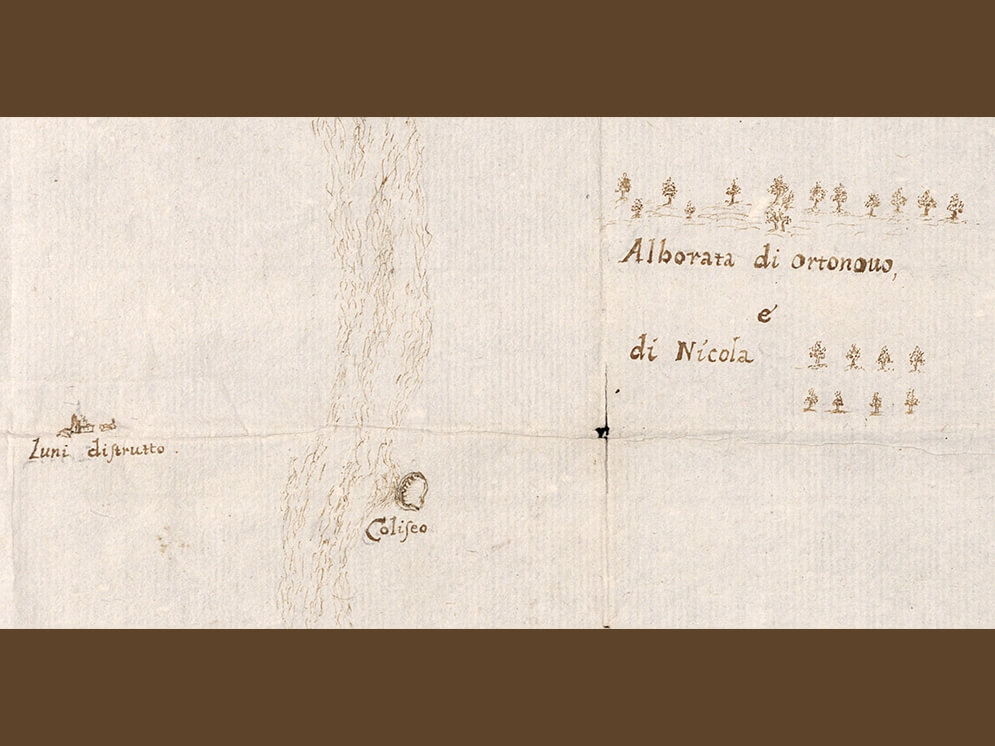 Alborata di ortonouo,
e
di Nicola
Luni distrutto.
Coliseo